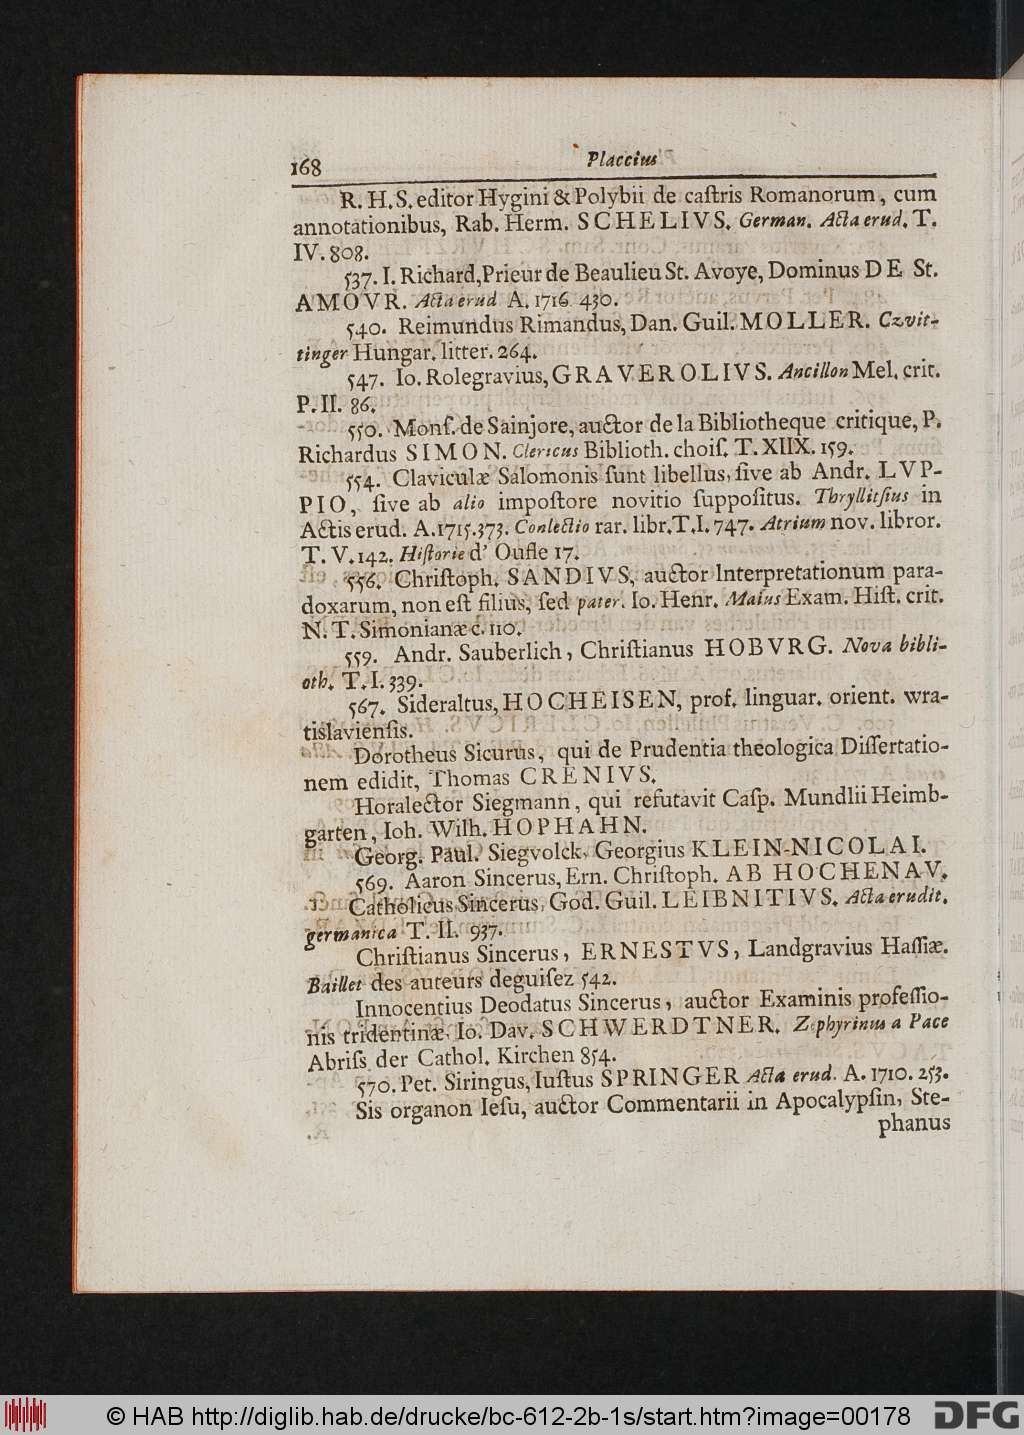 168 Placcius
R. H. S. editor Hygini & Polybii de caſtris Romanorum, cum
annotationibus, Rab. Herm. SCHELIVS. German. Acta erud. T.
IV. 808.
537. I. Richard, Prieur de Beaulieu St. Avoye, Dominus DE St.
AMOVR. Acta erud A. 1716. 430.
540. Reimundus Rimandus, Dan. Guil. MOLLER. Czvit-
tinger Hungar. litter. 264.
547. Io. Rolegravius, GRAVEROLIVS. Ancillon Mel. crit.
P. II. 86.
550. Monſ. de Sainjore, auctor de la Bibliotheque critique, P.
Richardus SIMON. Clericus Biblioth. choiſ. T. XIIX. 159.
554. Claviculæ Salomonis ſunt libellus, ſive ab Andr. LVP-
PIO, ſive ab alio impoſtore novitio ſuppoſitus. Thryllitſius in
Actis erud. A. 1715. 373. Conlectio rar. libr. T. I. 747. Atrium nov. libror.
T. V. 142. Hiſtorie d' Oufle 17.
556. Chriſtoph. SANDIVS, auctor Interpretationum para-
doxarum, non eſt filius, ſed pater. Io. Henr. Maius Exam. Hiſt. crit.
N. T. Simonianæ c. 110.
559. Andr. Sauberlich, Chriſtianus HOBVRG. Nova bibli-
oth. T. I. 339.
567. Sideraltus, HOCHEISEN, prof. linguar. orient. wra-
tislavienſis.
Dorotheus Sicurus, qui de Prudentia theologica Diſſertatio-
nem edidit, Thomas CRENIVS.
Horalector Siegmann, qui refutavit Caſp. Mundlii Heimb-
garten, Ioh. Wilh. HOPHAHN.
Georg. Paul. Siegvolck, Georgius KLEIN-NICOLAI.
569. Aaron Sincerus, Ern. Chriſtoph. AB HOCHENAV.
Catholicus Sincerus, God. Guil. LEIBNITIVS. Acta erudit.
germanica T. II. 937.
Chriſtianus Sincerus, ERNESTVS, Landgravius Haſſiæ.
Baillet des auteurs deguiſez 542.
Innocentius Deodatus Sincerus, auctor Examinis profeſſio-
nis tridentinæ, Io. Dav. SCHWERDTNER. Zephyrinus a Pace
Abriſs der Cathol. Kirchen 854.
570. Pet. Siringus, Iuſtus SPRINGER Acta erud. A. 1710. 253.
Sis organon Ieſu, auctor Commentarii in Apocalypſin, Ste-
phanus
© HAB http://diglib.hab.de/drucke/bc-612-2b-1s/start.htm?image=00178 DFG